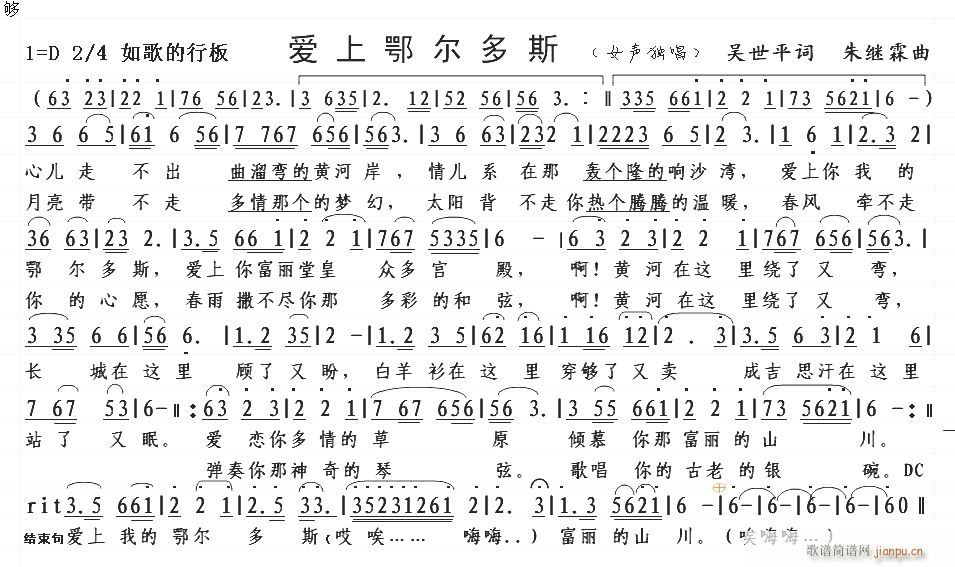 够
1=D 2/4 如歌的行板 爱上鄂尔多斯 (女声独唱) 吴世平词 朱继霖曲
(63 23|22 1|76 56|23.|3 635|2. 12|52 56|56 3.:‖335 661|2 2 1|73 5621|6 -)
3 6 6 5|61 6 56|7 767 656|563.|3 6 63|232 1|2223 6 5|2 3.|1 6 1|2.3 2|
心儿走 不出 曲溜弯的黄河岸，情儿系在那 轰个隆的响沙湾，爱上你我的
月亮带 不走 多情那个的梦幻，太阳背 不走你热个腾腾的温暖，春风 牵不走
36 63|23 2.|3.5 66 1|2 2 1|767 5335|6 -|6 3 2 3|2 2 1|767 656|563.|
鄂尔多斯，爱上你富丽堂皇 众多宫 殿，啊！黄河在这里绕了又弯，
你的心愿，春雨撒不尽你那 多彩的和弦，啊！黄河在这里绕了又弯，
3 35 6 6|56 6.|1.2 35|2 -|1.2 3 5|62 16|1 16 12|2. 3|3.5 6 3|2 1 6|
长 城在这里 顾了又盼，白羊衫在这里穿够了又卖 成吉思汗在这里
7 67 53|6-‖:63 2 3|2 2 1|7 67 656|56 3.|3 55 661|2 2 1|73 5621|6 -:‖
站了 又眠。爱 恋你多情的草 原 倾慕 你那富丽的山 川。
弹奏你那神奇的琴 弦。歌唱 你的古老的银 碗。DC
rit3.5 661|2 2 1|2.5 33.|35231261|2. 2|1.3 5621|6 -|6-|6-|6-|60‖
结束句爱上我的鄂尔 多 斯(哎 唉…… 嗨嗨..)富丽的山 川。(唉嗨嗨…)
歌谱简谱网
jianpu.cn